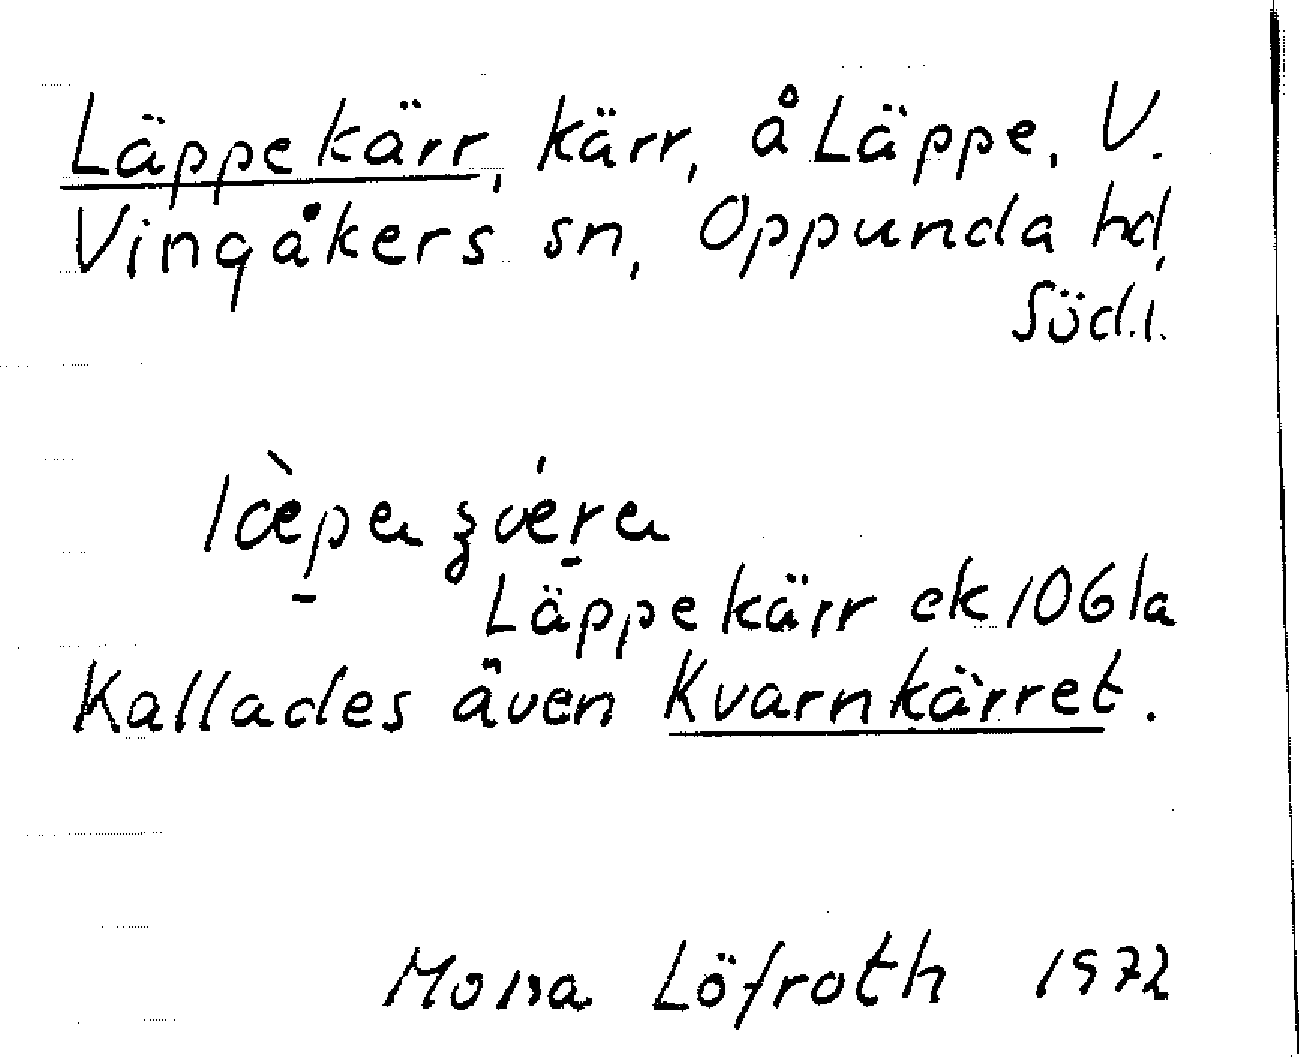 Läppekärr, kärr, å Läppe, V.
Vingåkers sn, Oppunda hd,
Söd.l.
Läppekärr ek 1061a
Kallades även Kvarnkärret.
Mona Löfroth 1972